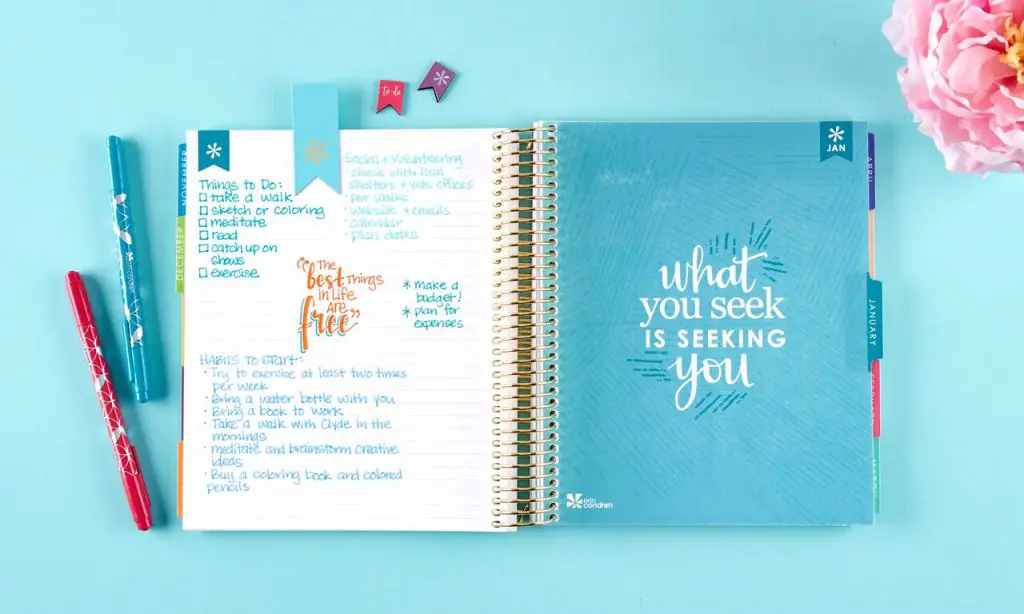 to do
NOVEMBER
DECEMBER
Things to Do:
take a walk
sketch or coloring
meditate
read
catch up on
shows
exercise
Social + Volunteering
· check with local
shelters + offices
· walks
· website + emails
· calendar
· plan dates
"The
best Things
in Life
ARE
free"
* make a
budget!
* plan for
expenses
HABITS TO START:
· Try to exercise at least two times
per week
· Bring a water bottle with you
· Bring a book to work
· Take a walk with Clyde in the
mornings
· meditate and brainstorm creative
ideas
· Buy a coloring book and colored
pencils
JAN
what
you seek
IS SEEKING
you
erin
condren
APRIL
JANUARY